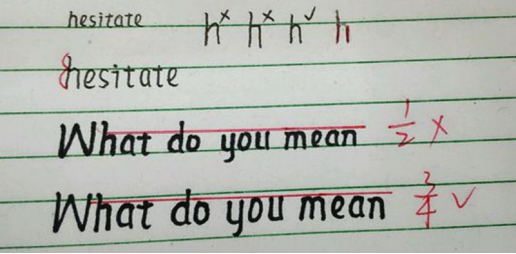 hesitate h× h× h✓ h
hesitate
What do you mean 1/2 ×
What do you mean 3/4 ✓